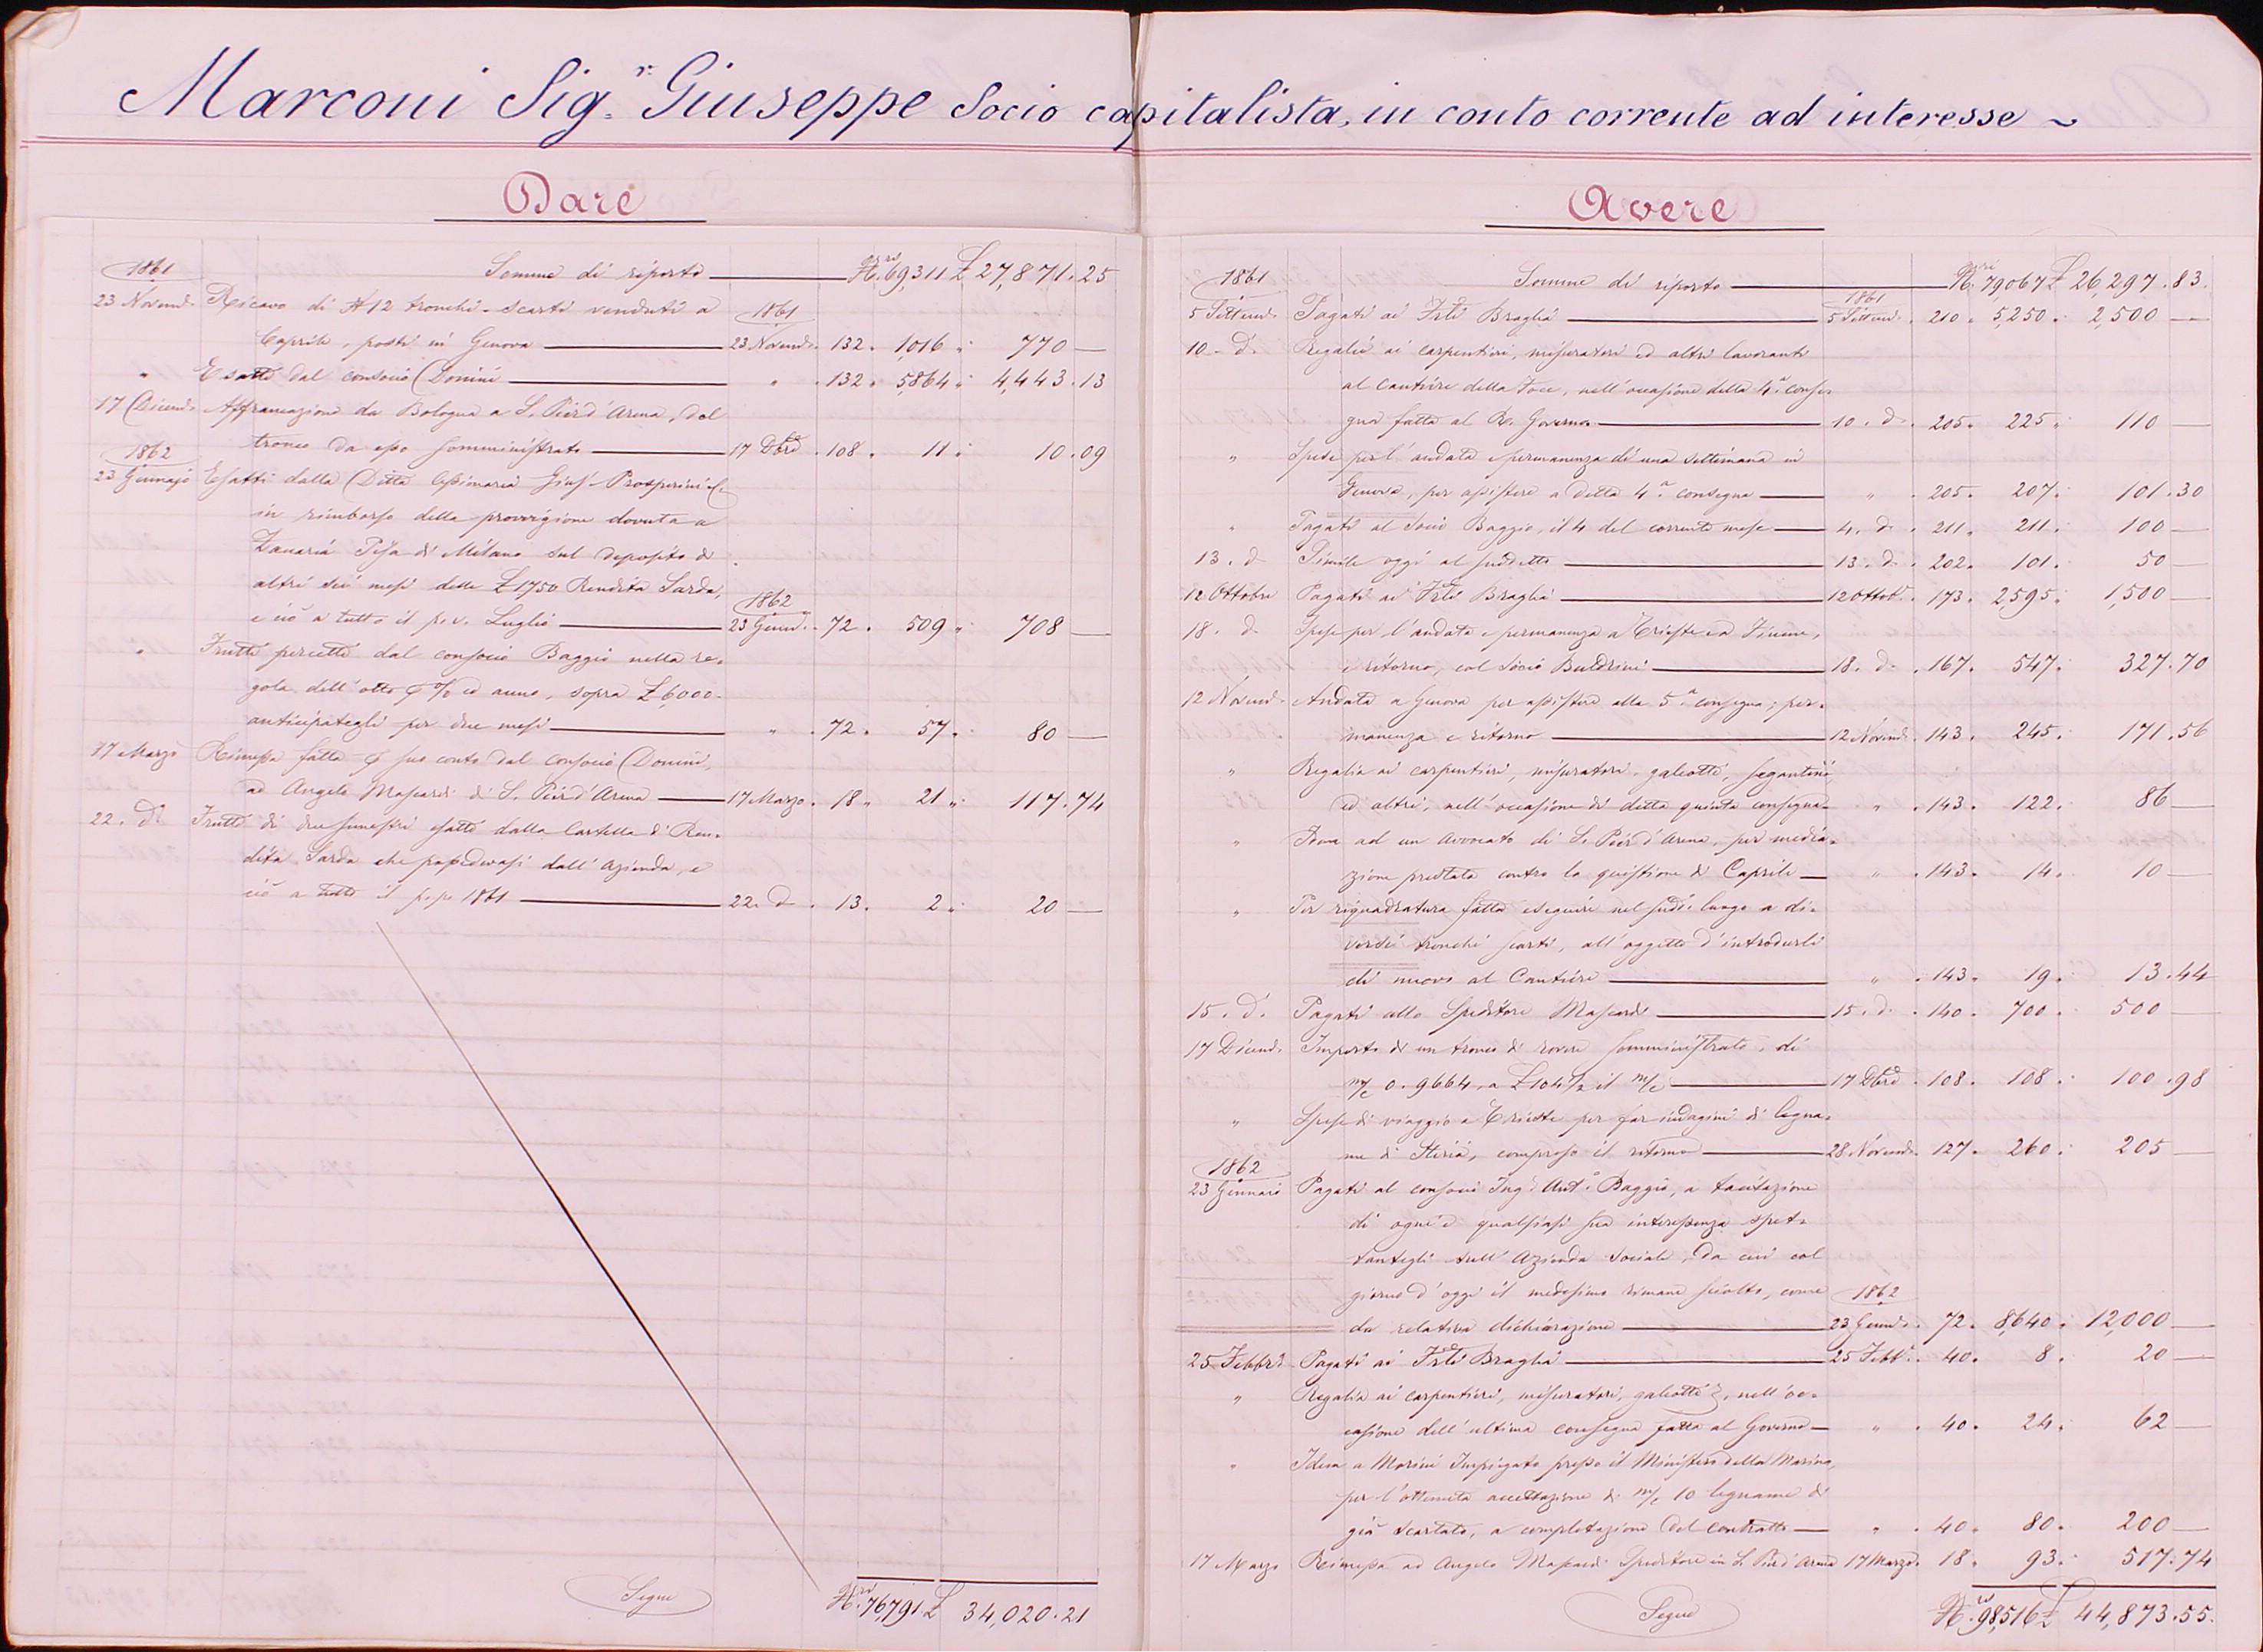 Marconi Sig.r Giuseppe Socio capitalista, in conto corrente ad interesse ~
Dare
1861 Somme di riporto N.ri 69,311 £ 27,871.25
23 Novemb. Ricavo di N 12 tronchi scarti venduti a 1861
Caprile, posti in Genova 23 Novemb. 132. 1,016 " 770 —
" Esatte dal consocio Donini " 132. 5,864 " 4,443.13
17 Dicemb. Affrancazione da Bologna a S. Pier d'Arena, del
tronco da esso somministrato 17 Dbre 108. 11 " 10.09
1862
23 Gennajo Esatti dalla Ditta Giusē Prosperini
in rimborso della provvigione dovuta a
Zaccaria Pisa di Milano sul deposito di
altri sei mesi delle £ 1750 Rendita Sarda,
e ciò a tutto il p.v. Luglio 1862 23 Genn. 72. 509 " 708 —
" Frutti percetti dal consocio Baggio nella re=
gola dell'otto p % ad anno, sopra £ 6,000
anticipategli per due mesi " 72. 57 " 80 —
17 Marzo Rimessa fatta p suo conto dal consocio Donini,
ad Angelo Mascardi di S. Pier d'Arena 17 Marzo. 18 " 21 " 117.74
22. d.° Frutti di due semestri esatti dalla Cartella di Ren=
dita Sarda che possedevasi dall'Azienda, e
ciò a tutto il p.p. 1861 22. d.° 13. 2 " 20 —
Segue N.ri 76,791 £ 34,020.21
Avere
1861 Somme di riporto N.ri 79,067 £ 26,297.83.
1861
5 Settemb. Pagati ai Frlli Braglia 5 Settemb. 210. 5,250. 2,500 —
10. d.° Regalie ai carpentieri, misuratori ed altri lavoranti
al Cantiere della Foce, nell'occasione della 4.a conse=
gna fatta al R. Governo 10. d.° 205. 225. 110 —
" Spese per l'andata e permanenza di una settimana in
Genova, per assistere a detta 4.a consegna " 205. 207. 101.30
" Pagati al Socio Baggio, il 4 del corrente mese 4. d.° 211. 211. 100 —
13. d.° Simile oggi al suddetto 13. d.° 202. 101. 50 —
12 Ottobre Pagati ai Frlli Braglia 12 Ottob. 173. 2,595. 1,500 —
18. d.° Spese per l'andata e permanenza a Trieste e a Fiume,
e ritorno, col Socio Buldrini 18. d.° 167. 547. 327.70
12 Novemb. Andata a Genova per assistere alla 5.a consegna; per=
manenza e ritorno 12 Novemb. 143. 245. 171.56
" Regalia ai carpentieri, misuratori, galeotti, segantini,
ed altri, nell'occasione di detta quinta consegna " 143. 122. 86 —
" Idem ad un Avvocato di S. Pier d'Arena, per media=
zione prestata contro la quistione di Caprile " 143. 14. 10 —
" Per riquadratura fatta eseguire nel sudd.° luogo a di=
versi tronchi scarti, all'oggetto d'introdurli
di nuovo al Cantiere " 143. 19. 13.44
15. d.° Pagati allo Speditore Mascardi 15. d.° 140. 700. 500 —
17 Dicemb. Importo di un tronco di rovere somministrato, di
m/c 0.9664, a £ 104 1/2 il m/c 17 Dbre 108. 108. 100.98
" Spese di viaggio a Trieste per far indagini di legna=
me di Stiria, compreso il ritorno 28 Novemb. 127. 260. 205 —
1862
23 Gennaio Pagati al consocio Ing.r Ant.° Baggio, a tacitazione
di ogni e qualsiasi sua interessenza spet=
tantegli sull'Azienda Sociale, da cui col
giorno d'oggi il medesimo rimane sciolto, come 1862
da relativa dichiarazione 23 Genn. 72. 8,640. 12,000 —
25 Febbr.° Pagati ai Frlli Braglia 25 Febb. 40. 8. 20 —
" Regalia ai carpentieri, misuratori, galeotti, nell'oc=
casione dell'ultima consegna fatta al Governo " 40. 24. 62 —
" Idem a Morini Impiegato presso il Ministero della Marina,
per l'ottenuta accettazione di m/c 10 legname di
già scartato, a completazione del contratto " 40. 80. 200 —
17 Marzo Rimessa ad Angelo Mascardi Speditore in S. Pier d'Arena 17 Marzo 18. 93. 517.74
Segue N.ri 98,516 £ 44,873.55.